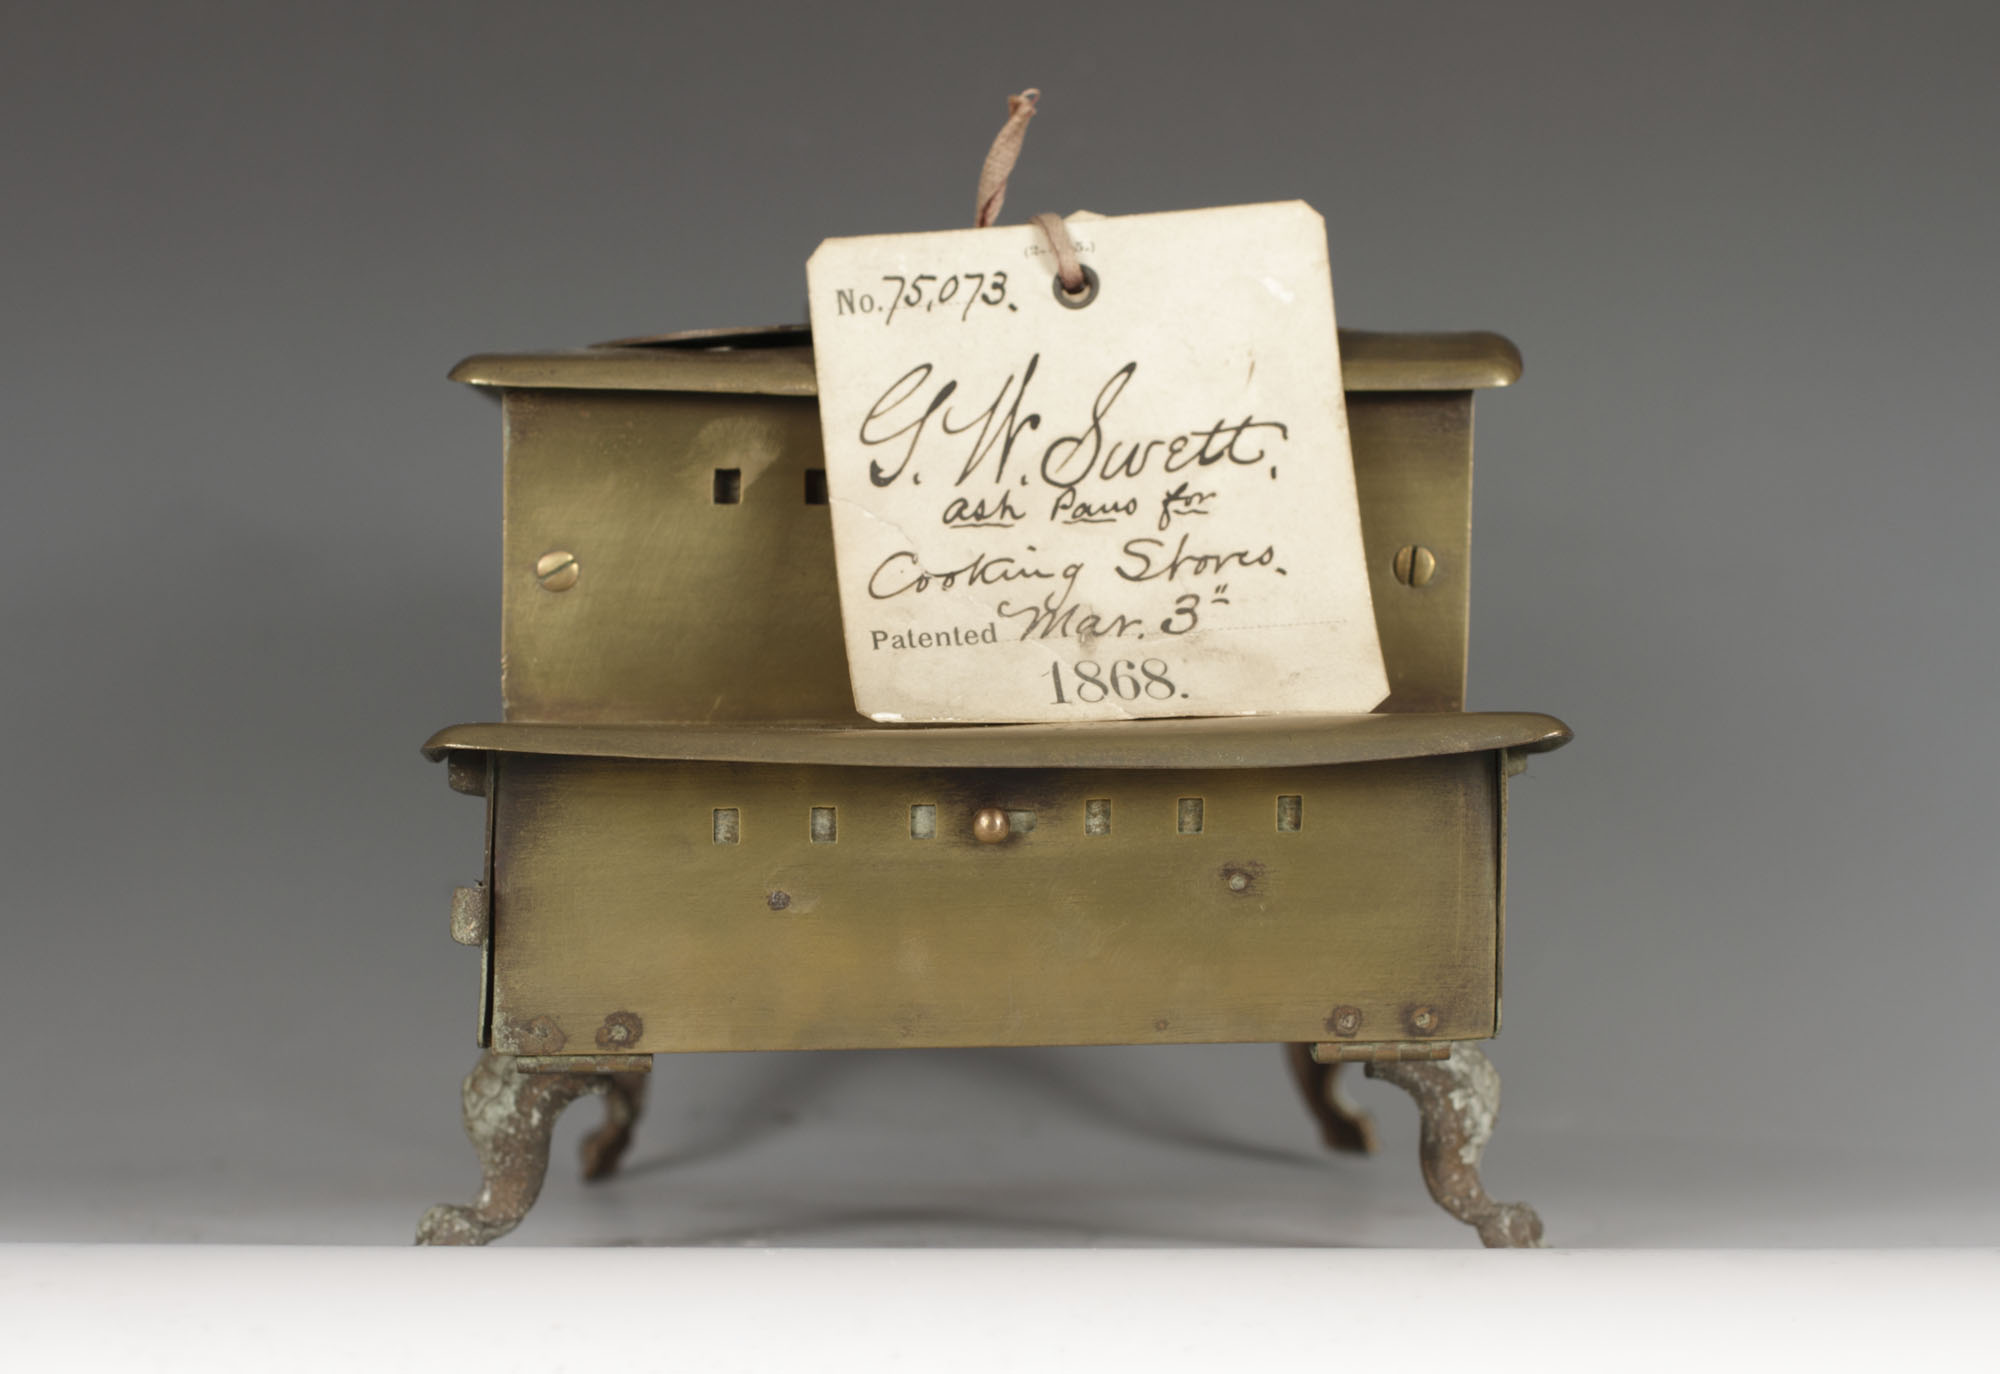 No. 75,073.
G. W. Swett.
ash Pans for
Cooking Stoves.
Patented Mar. 3"
1868.